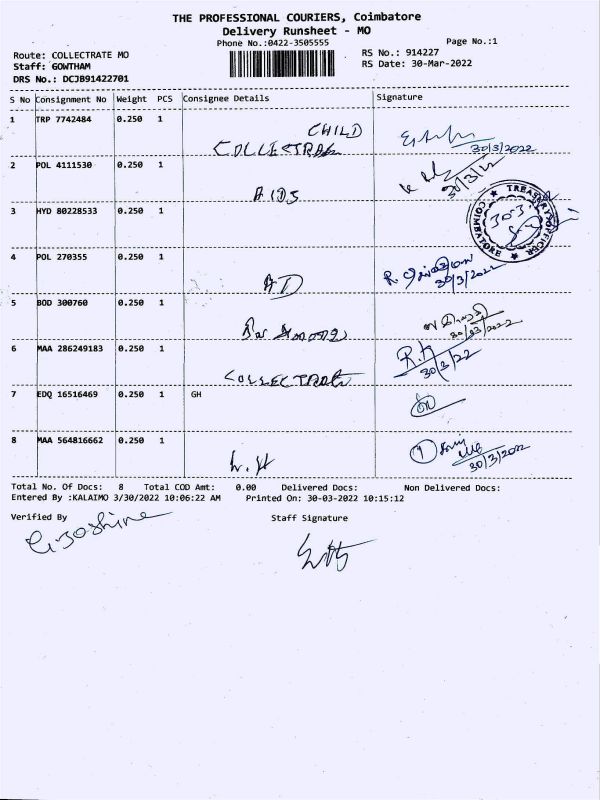 THE PROFESSIONAL COURIERS, Coimbatore
Delivery Runsheet - MO
Phone No.:0422-3505555
Page No.:1
Route: COLLECTRATE MO
RS No.: 914227
Staff: GOWTHAM
RS Date: 30-Mar-2022
DRS No.: DCJB91422701
S No Consignment No Weight PCS Consignee Details Signature
1 TRP 7742484 0.250 1
CHILD
COLLECTRATE 30/3/2022
2 POL 4111530 0.250 1
AIDS 30/3/22
3 HYD 80228533 0.250 1
TREASURY OFFICER COIMBATORE
30-3
4 POL 270355 0.250 1
AD 30/3/2022
5 BOD 300760 0.250 1
30/03/2022
6 MAA 286249183 0.250 1
COLLECTRATE 30/3/22
7 EDQ 16516469 0.250 1 GH
8 MAA 564816662 0.250 1
30/3/2022
Total No. Of Docs: 8 Total COD Amt: 0.00 Delivered Docs: Non Delivered Docs:
Entered By :KALAIMO 3/30/2022 10:06:22 AM Printed On: 30-03-2022 10:15:12
Verified By Staff Signature